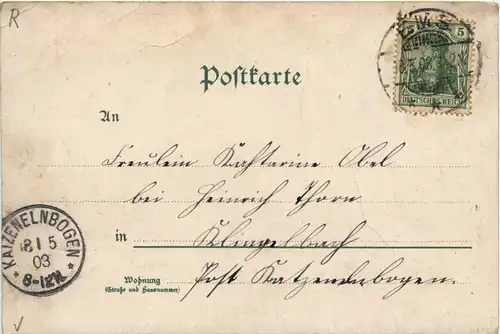 R
5
DEUTSCHES REICH
Postkarte
An
Freulein Kahtarine Obel
bei Heinrich Thorn
in Klingelbach
Wohnung
(Straße und Hausnummer)
Post Katzenelnbogen.
KATZENELNBOGEN
18 5
03
8-12N.